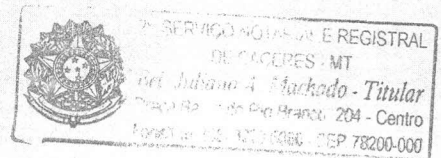 SERVIÇO NOTARIAL E REGISTRAL
DE CÁCERES - MT
Bel. Juliano A. Machado - Titular
Rio Branco, 204 - Centro
CEP 78200-000